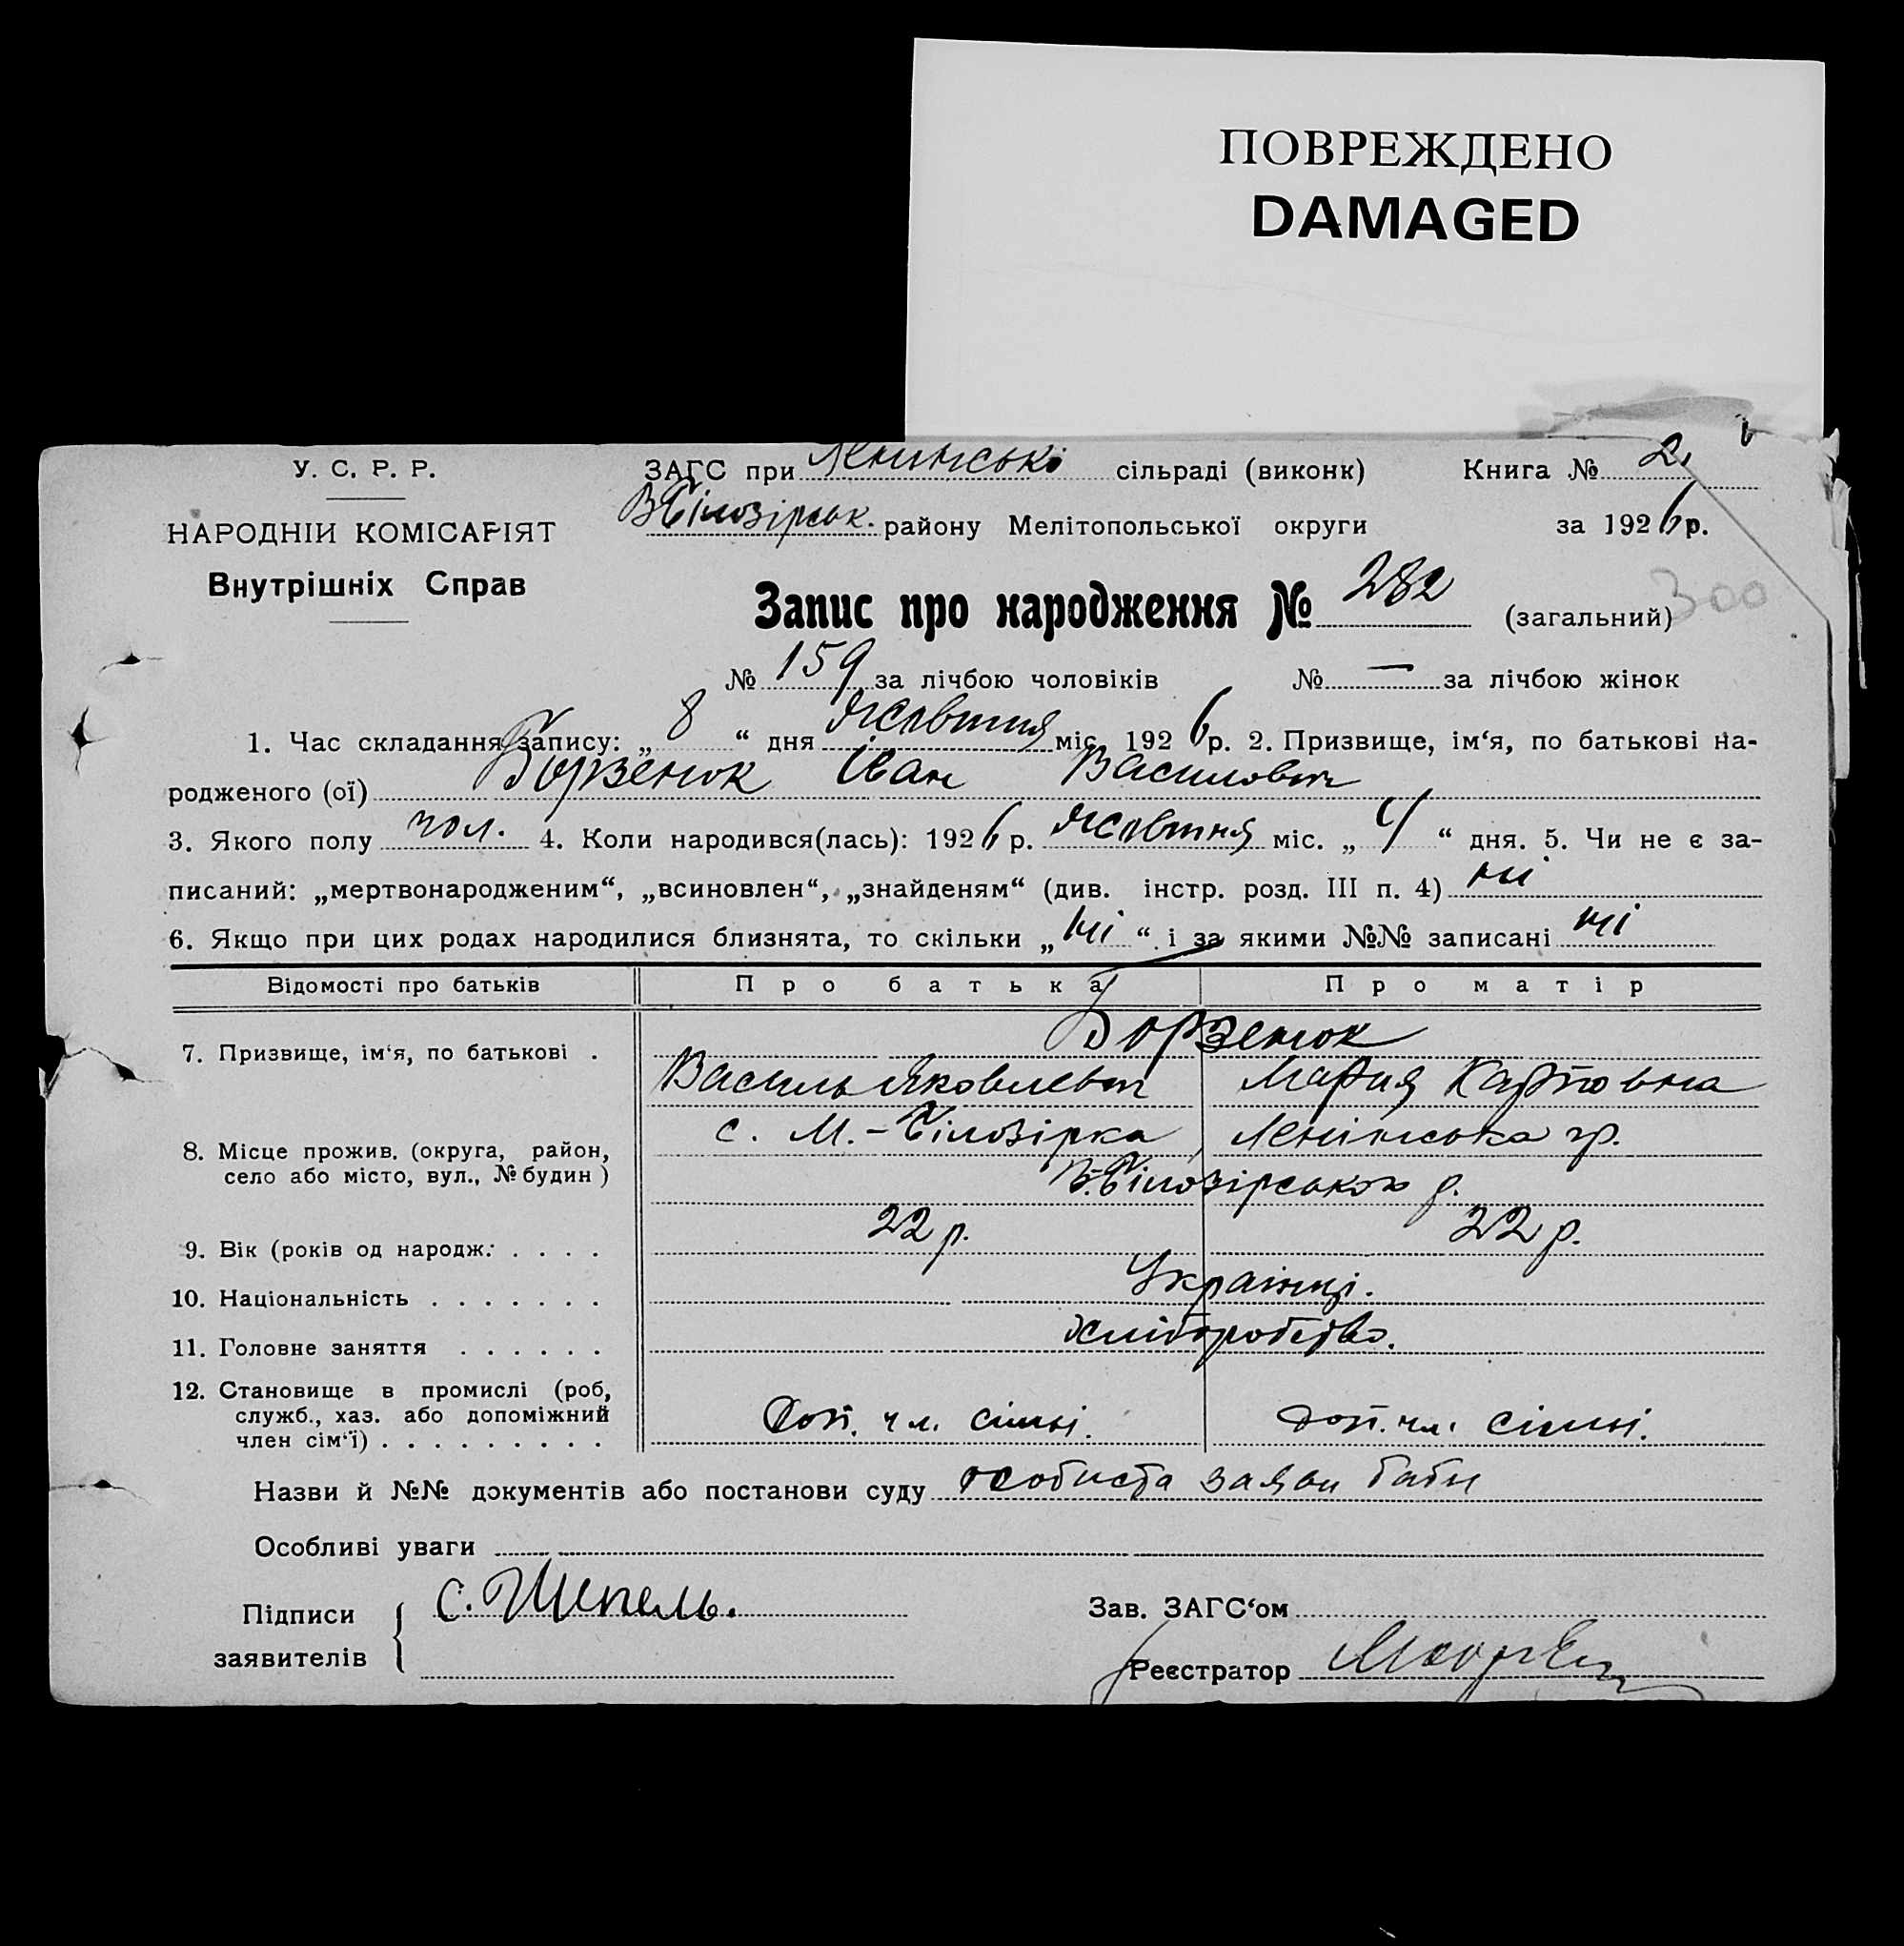 ПОВРЕЖДЕНО
DAMAGED
У. С. Р. Р.
ЗАГС при Ленинські сільраді (виконк) Книга № 2
НАРОДНІЙ КОМІСАРІЯТ
В Білозірськ. району Мелітопольської округи за 1926 р.
Внутрішніх Справ
Запис про народження № 282 (загальний) 300
№ 159 за лічбою чоловіків № — за лічбою жінок
1. Час складання запису: „ 8 “ дня жовтня міс. 1926 р. 2. Призвище, ім‘я, по батькові на-
родженого (ої) Борзенок Іван Василович
3. Якого полу чол. 4. Коли народився(лась): 1926 р. жовтня міс. „ 4 “ дня. 5. Чи не є за-
писаний: „мертвонародженим“, „всиновлен“, „знайденям“ (див. інстр. розд. III п. 4) ні
6. Якщо при цих родах народилися близнята, то скільки „ ні “ і за якими №№ записані ні
Відомості про батьків Про батька Про матір
7. Призвище, ім‘я, по батькові . Борзенок
Василь Яковлевич Мария Карповна
8. Місце прожив. (округа, район, село або місто, вул., № будин) с. М.-Білозірка, Ленінська гр.
В.-Білозірського р.
9. Вік (років од народж. . . . . 22 р. 22 р.
10. Національність . . . . . . . Українці.
11. Головне заняття . . . . . . хліборобство.
12. Становище в промислі (роб,
служб., хаз. або допоміжний Доп. чл. сімьі. доп. чл. сімьі.
член сім‘ї) . . . . . . . . .
Назви й №№ документів або постанови суду особиста заяви баби
Особливі уваги
Підписи заявителів С. Шепель.
Зав. ЗАГС‘ом
Реєстратор